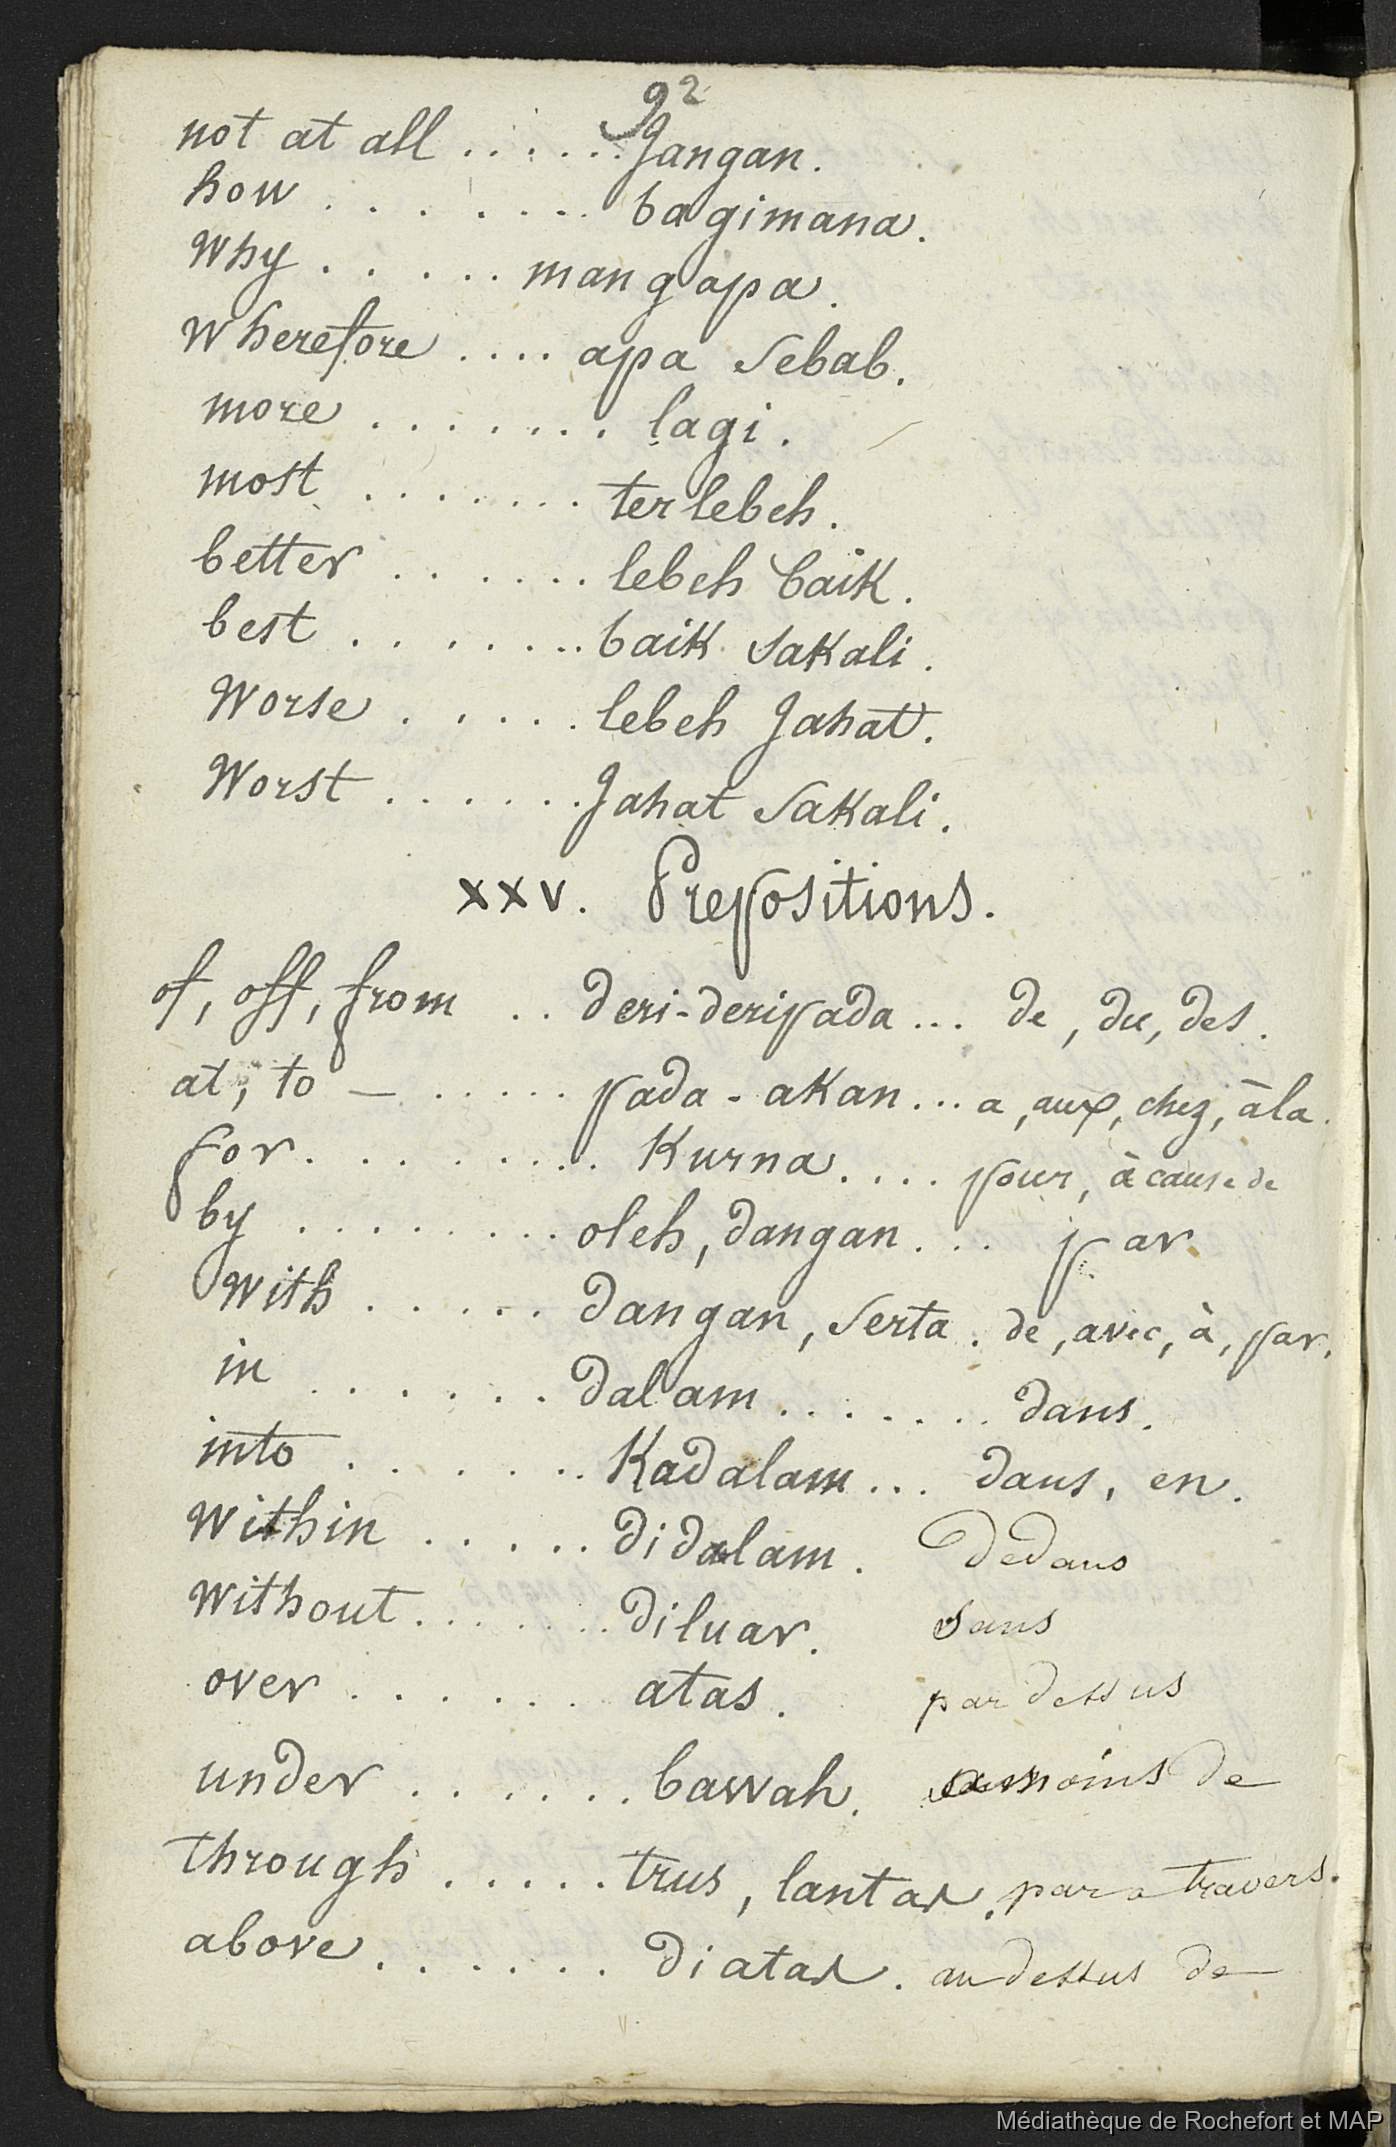 92
not at all ...... Jangan.
how ........ bagimana.
Why ..... mangapa.
Wherefore .... apa sebab.
more ....... lagi.
most ....... terlebeh.
better ...... lebeh baik.
best ....... baik sakali.
Worse ..... lebeh Jahat.
Worst ...... Jahat sakali.
XXV. Prepositions.
of, off, from .. deri-deripada ... de, du, des.
at, to — ..... pada - akan ... a, aux, chez, à la.
for ........ Kurna .... pour, à cause de
by ......... oleh, dangan ... par
With ..... dangan, serta. de, avec, à, par,
in ...... dalam ....... dans.
into ...... Kadalam ... dans, en.
Within ..... didalam. Dedans
Without ....... diluar. Sans
over ...... atas. par dessus
under ...... bawah. moins de
Through ..... trus, lantas. par a travers.
above ...... diatas. au dessus de
Médiathèque de Rochefort et MAP